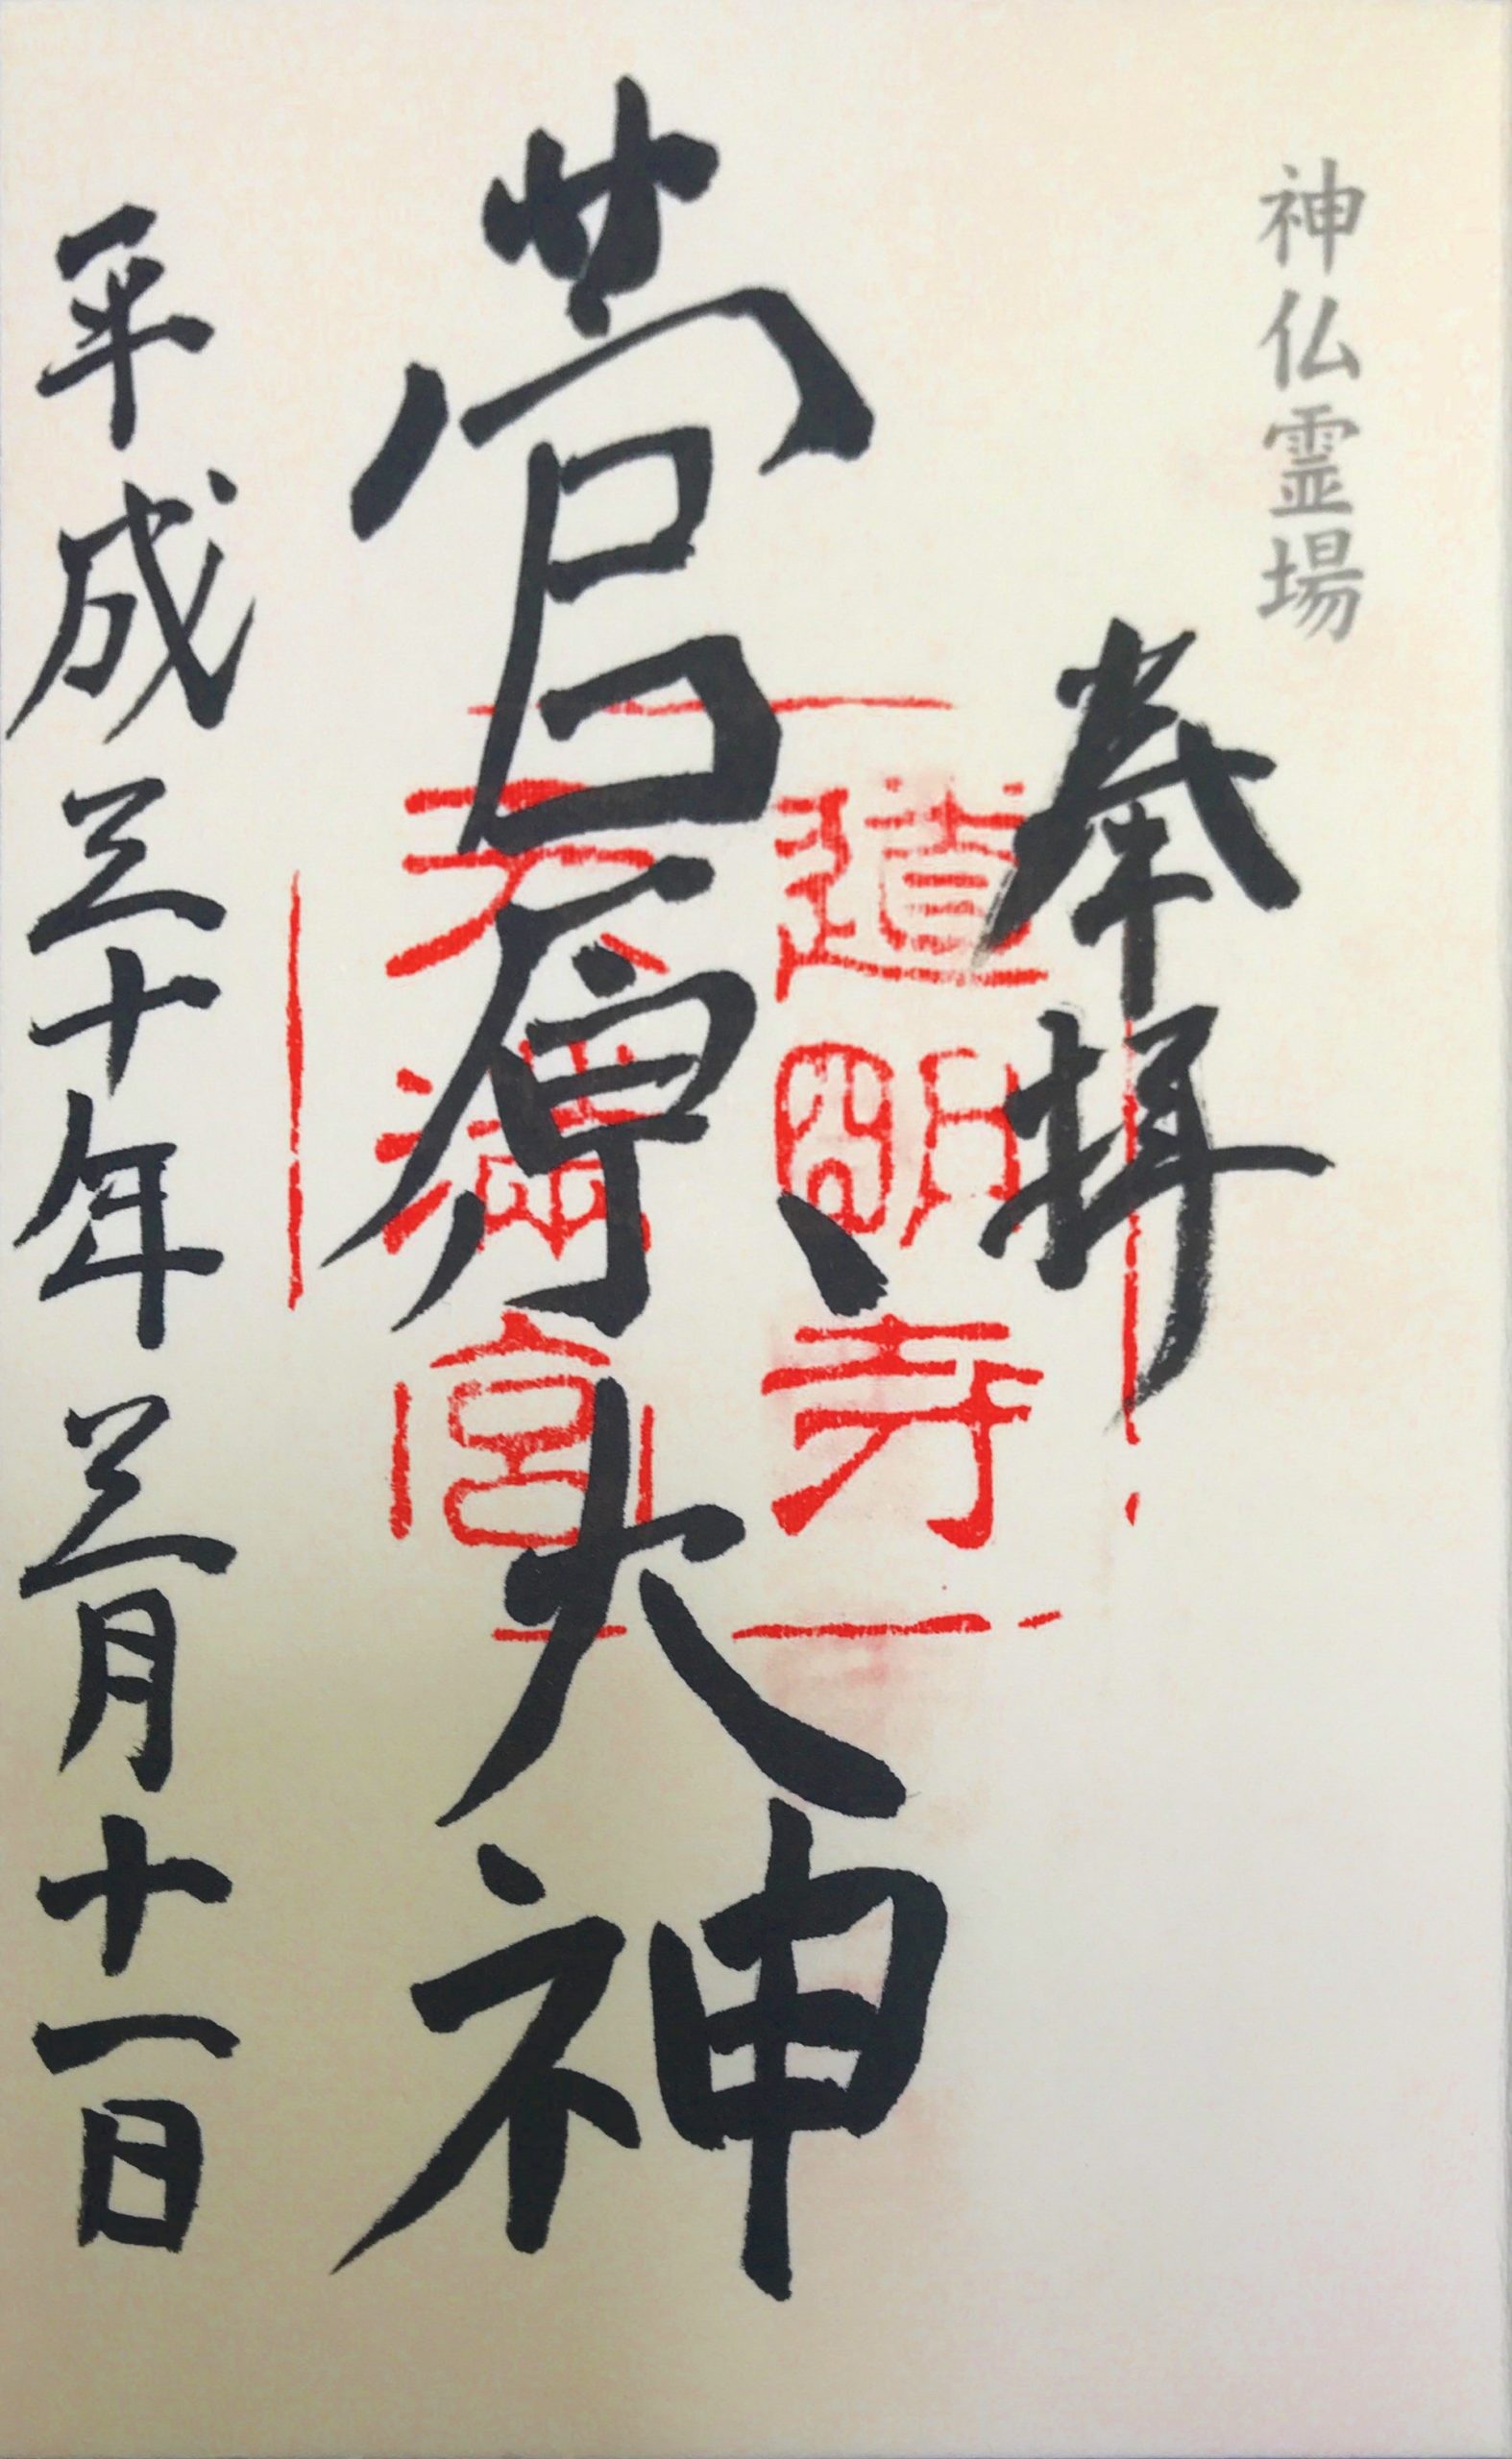 神仏霊場
奉拝
道明寺
天満宮
菅原大神
平成三十年三月十一日